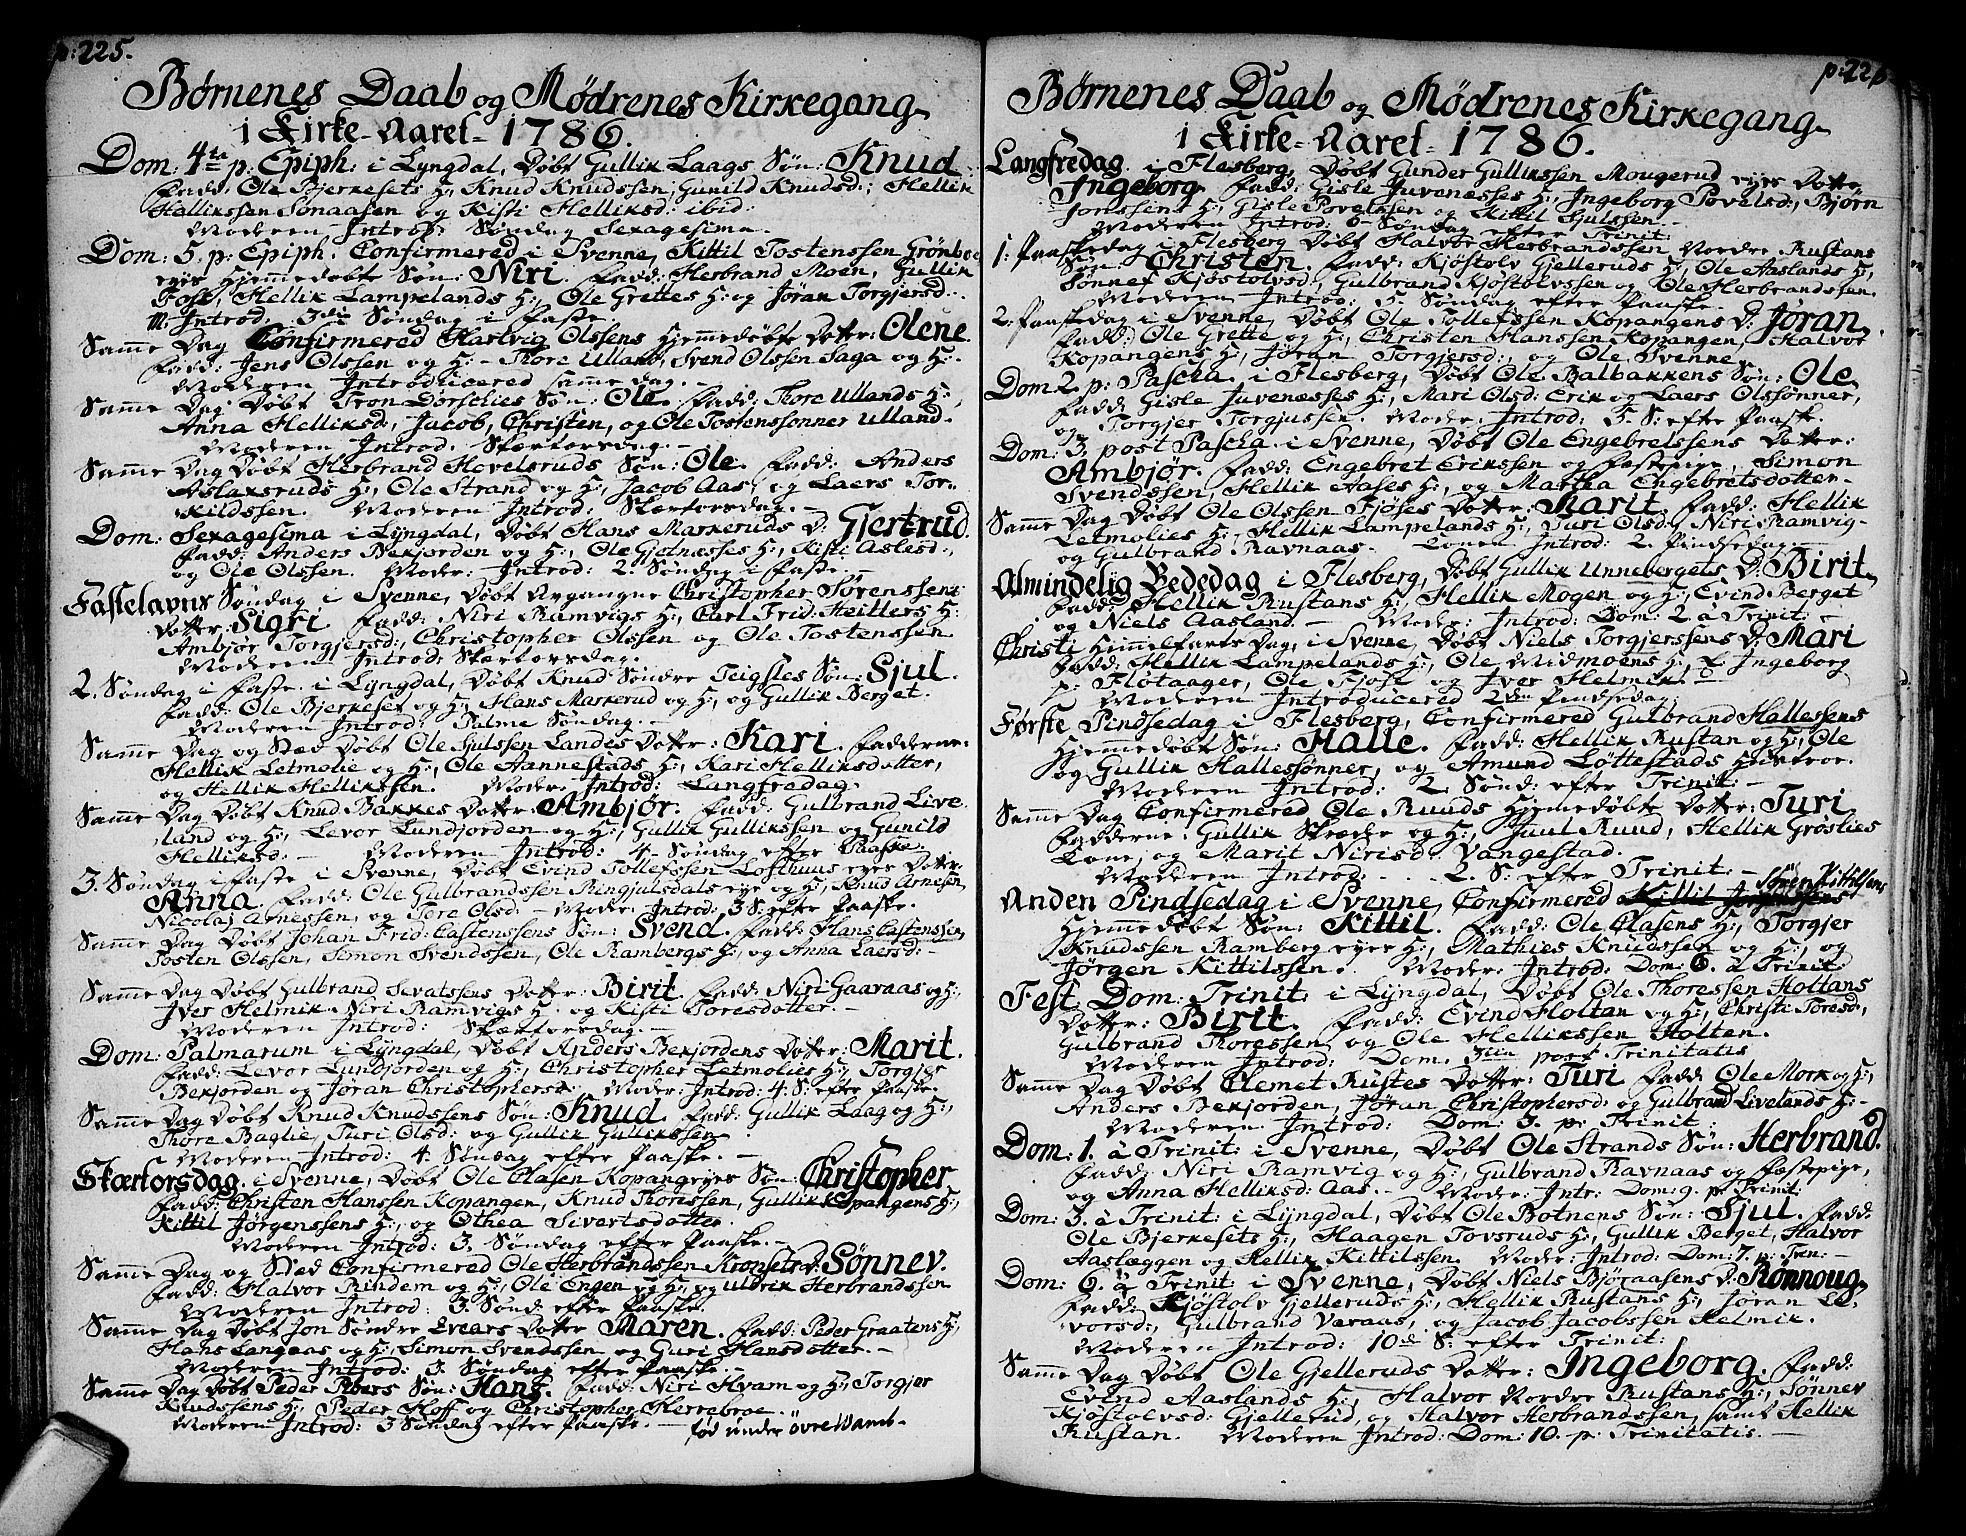 p: 225.
Børnenes Daab og Mødrenes Kirkegang
i Kirke-Aaret 1786.
Dom: 4ta p: Epiph: i Lyngdal, Døbt Gullik Laags Søn: Knud
Fadd: Ole Bjerkesets H:, Knud Knudssen, Gunild Knudsd:, Hellik
Hallikssen Sønaasen og Kisti Helliksd: ibid:
Moderen Introd: Søndag Sexagesima.
Dom: 5. p: Epiph. Confirmered i Svenne, Kittil Tostenssen Grønboe
eyes hjemmedøbt Søn: Niri. Fadd: Herbrand Moen, Gullik
Fost, Hellik Lampelands H:, Ole Grettes H: og Jøran Torgjersd:
M: Introd. 3die Søndag i Faste.
Samme Dag Confirmered Hartvig Olssens hjemmedøbte Datter: Olene
Fadd: Jens Olssen og H: Thore Ulland, Svend Olssen Saga og H:
Moderen Introduceered samme dag.
Samme Dag Døbt Tron Dorschies Søn: Ole. Fadd: Thore Ullands H:,
Anna Helliksd, Jacob, Christen, og Ole Tostenssønner Ulland.
Moderen Introd. Skærtorsdag.
Samme Dag Døbt Herbrand Hovelsruds Søn: Ole. Fadd: Anders
Aslaksruds H:, Ole Strand og H:, Jacob Aas, og Laers Tor-
kildssen. Moderen Introd: Skærtorsdag.
Dom: Sexagesima i Lyngdal, Døbt Hans Markeruds D: Gjertrud.
Fadd: Anders Bekjorden og H:, Ole Gjelnæsses H:, Kisti Aslesd:,
og Ole Olssen. Moder: Introd: 2. Søndag i Faste.
Fastelavns Søndag i Svenne, Døbt Avgangne Christopher Sørenssens
Datter Sigri. Fadd: Niri Ramvigs H:, Carl Frid: Heitlers H:
Ambjør Torgjersd:, Christopher Olssen og Ole Tostenssen
Moderen Introd: Skærtorsdag.
2. Søndag i Faste i Lyngdal, Døbt Knud Søndre Teigsles Søn: Sjul.
Fadd: Ole Bjerkeset og H:, Hans Markerud og H:, og Gullik Berget.
Moderen Introd: Palme Søndag.
Samme Dag og Stæd Døbt Ole Sjulssen Landes Datter: Kari. Fadderne:
Hellik Letmolie og H:, Ole Aannestads H:, Kari Helliksdatter,
og Hellik Hellikssen. Moder: Introd: Langfredag.
Samme Dag Døbt Knud Bakkes Datter: Ambjør. Fadd: Gulbrand Live-
land og H:, Levor Lundjorden og H:, Gullik Gullikssen og Gunild
Helliksd: Moderen Introd: 4. Søndag efter Paaske.
3. Søndag i Faste i Svenne, Døbt Evind Tollefssen Lofthuus eyes Datter
Anna. Fadd: Ole Gulbrandssen Ringjulsdals eye og H:, Jens Arnesen
Nicolaj Arnessen, og Tore Olsd: Moder: Introd: 3 S: efter Paaske.
Samme Dag Døbt Johan Frid: Castenssens Søn: Svend. Fadd: Hans Castenssen,
Tosten Olssen, Simon Svendssen, Ole Rambergs H:, og Anna Laersd:
Samme Dag Døbt Gulbrand Sevatssens Datter: Birit. Fadd: Niri Gaaraas og H:,
Iver Helmik, Niri Ramvigs H: og Kisti Toresdotter.
Moderen Introd: Skærtorsdag.
Dom: Palmarum i Lyngdal, Døbt Anders Bekjordens Datter: Marit.
Fadd: Levor Lundjorden og H:, Christopher Letmolies H:, Torgjer
Bekjorden og Jøran Christophersd: Moder: Introd: 4. S: efter Paaske.
Samme Dag Døbt Knud Knudssens Søn: Knud. Fadd: Gullik Laag og H:,
Thore Baglie, Turi Olsd: og Gullik Gullikssen
Moderen Introd: 4. Søndag efter Paaske.
Skærtorsdag i Svenne, Døbt Ole Clasen Kopangeyes Søn: Christopher
Fadd: Christen Hanssen Kopangen, Knud Thorissen, Gullik Kopangens H:,
Kittil Jørgenssens H:, og Othea Sivertsdotter.
Moderen Introd: 3. Søndag efter Paaske.
Samme Dag og Stæd Confirmered Ole Herbrandssen Kronsets D: Sønnev.
Fadd: Halvor Rindem og H:, Ole Engen og H: og Uldrik Herbrandssen
Moderen Introd: 3. Sønd: efter Paaske.
Samme Dag Døbt Jon Søndre Evears Datter Maren. Fadd: Peder Graatens H:,
Hans Langaas og H:, Simon Svendssen og Guri Hansdotter.
Moderen Introd: 3. Søndag efter Paaske.
Samme Dag Døbt Peder Pibers Søn: Hans. Fadd: Niri Hvam og H:, Torgjer
Knudssens H:, Peder Hoff og Christopher Herrebroe.
Moderen Introd: 3 Søndag efter Paaske. fød under övre Wamb.
p: 226
Børnenes Daab og Mødrenes Kirkegang
i Kirke-Aaret 1786.
Langfredag i Flesberg, Døbt Gunder Gullikssen Mougerud eyes Datter
Ingeborg. Fadd: Gisle Juvenæsses H:, Ingeborg Povelsd:, Bjørn
Jonssens H:, Gisle Povelssen og Kittil Sjulssen.
Moderen Introd: 6 Søndag efter Trinit:
1. Paaskedag i Flesberg Døbt Halvor Herbrandssen Nordre Rustans
Søn: Christen. Fadd: Kjøstolv Gjelleruds H:, Ole Aaslands H:,
Sønnef Kjøstolvsd:, Gulbrand Kjøstolvssen og Ole Herbrandssen.
Moderen Introd: 5. Søndag efter Paaske.
2. Paaskedag i Svenne, Døbt Ole Tollefssen Kopangens D: Jøran.
Fadd: Ole Grette og H:, Christen Hanssen Kopangen, Halvor
Kopangens H:, Jøran Torgjersd:, og Ole Svenne.
Dom 2. p: Pascha i Flesberg, Døbt Ole Balbakkens Søn: Ole.
Fadd: Gisle Juvenæsses H:, Mari Olsd: Erik og Laers Olssønner,
og Torgjer Torgjussen. Moder: Introd: 5. S: efter Paaske.
Dom: 3. post Pascha i Svenne, Døbt Ole Engebretssens Datter:
Ambjør. Fadd: Engebret Erikssen og Fæstepige, Simon
Svendssen, Hellik Aases H:, og Martha Engebretsdotter.
Samme Dag Døbt Ole Olssen Fjøses Datter: Marit. Fadd: Hellik
Letmolies H:, Hellik Lampelands H:, Turi Olsd:, Niri Ramvig
og Gulbrand Ravnaas. Konen Introd: 2. Pindsedag.
Almindelig Bededag i Flesberg, Døbt Gullik Unnebergets D: Birit.
Fadd: Hellik Rustans H:, Hellik Mogen og H:, Evind Berget
og Niels Aasland. Moder: Introd: Dom: 2 à Trinit:
Christi Himmelfarts Dag, i Svenne, Døbt Niels Torgjerssens D: Mari
Fadd: Hellik Lampelands H:, Ole Midmoens H:, Ingeborg
p: Fløtaager, Ole Fjøst og Iver Helmik.
Moderen Introducered 2den Pindsedag.
Første Pindsedag i Flesberg, Confirmered Gulbrand Hallessens
hjemmedøbt Søn: Halle. Fadd: Hellik Rustan og H:, Ole
og Gullik Hallessønner, og Amund Løttestads Hustroe.
Moderen Introd: 2. Sønd: efter Trinit:
Samme Dag Confirmered Ole Ruuds hjemmedøbte Datter: Turi
Fadderne: Gullik Skreder og H:, Juul Ruud, Hellik Grøslies
Kone, og Marit Nirisd. Vangestad.
Moderen Introd: . . . 2. S: efter Trinit:
Anden Pindsedag i Svenne, Confirmered Kittil Jørgenssens Søren Kittilsens
hjemmedøbt Søn: Kittil. Fadd: Ole Clasens H:, Torgjer
Knudssen Ramberg eyes H:, Mathies Knudssen og H:, og
Jørgen Kittilssen. Moder: Introd: Dom: 6. à Trinit:
Fest. Dom: Trinit: i Lyngdal, Døbt Ole Thoressen Holtans
Datter: Birit. Fadd: Evind Holtan og H:, Christi Toresd:,
Gulbrand Thoressen, og Ole Hellikssen Holten.
Moderen Introd: Dom. 3tia post Trinitatis
Samme Dag Døbt Clemet Rustes Datter: Turi Fadd: Ole Mork og H:,
Anders Bekjorden, Jøran Christophersd: og Gulbrand Livelands H:
Moderen Introd: Dom: 3. p: Trinit:
Dom: 1. à Trinit: i Svenne, Døbt Ole Strands Søn: Herbrand.
Fadd: Niri Ramvig og H:, Gulbrand Ravnaas og Fæstepige,
og Anna Helliksd: Aas. Moder: Intr: Dom: 9. p: Trinit:
Dom: 3. à Trinit: i Lyngdal, Døbt Ole Botnens Søn: Sjul. Fadd:
Ole Bjerkesets H:, Haagen Tovsruds H:, Gullik Berget, Halvor
Aaslæggen og Hellik Kittilssen. Moder: Introd: Dom: 7. p: Trin:
Dom: 6. à Trinit: i Svenne, Døbt Niels Bjøraasens D: Rønnoug.
Fadd: Kjøstolv Gjelleruds H:, Hellik Rustans H:, Jøran Le-
vorsd:, Gulbrand Varaas, og Jacob Jacobssen Helmik.
Moderen Introd: 10de S: efter Trinit:
Samme Dag Døbt Ole Gjelleruds Datter: Ingeborg. Fadd:
Evind Aaslands H:, Halvor Nordre Rustans H:, Sønnev
Kjøstolvsd: Gjellerud, og Halvor Herbrandssen, samt Hellik
Rustan. Moderen Introd: Dom: 10. p: Trinitatis.